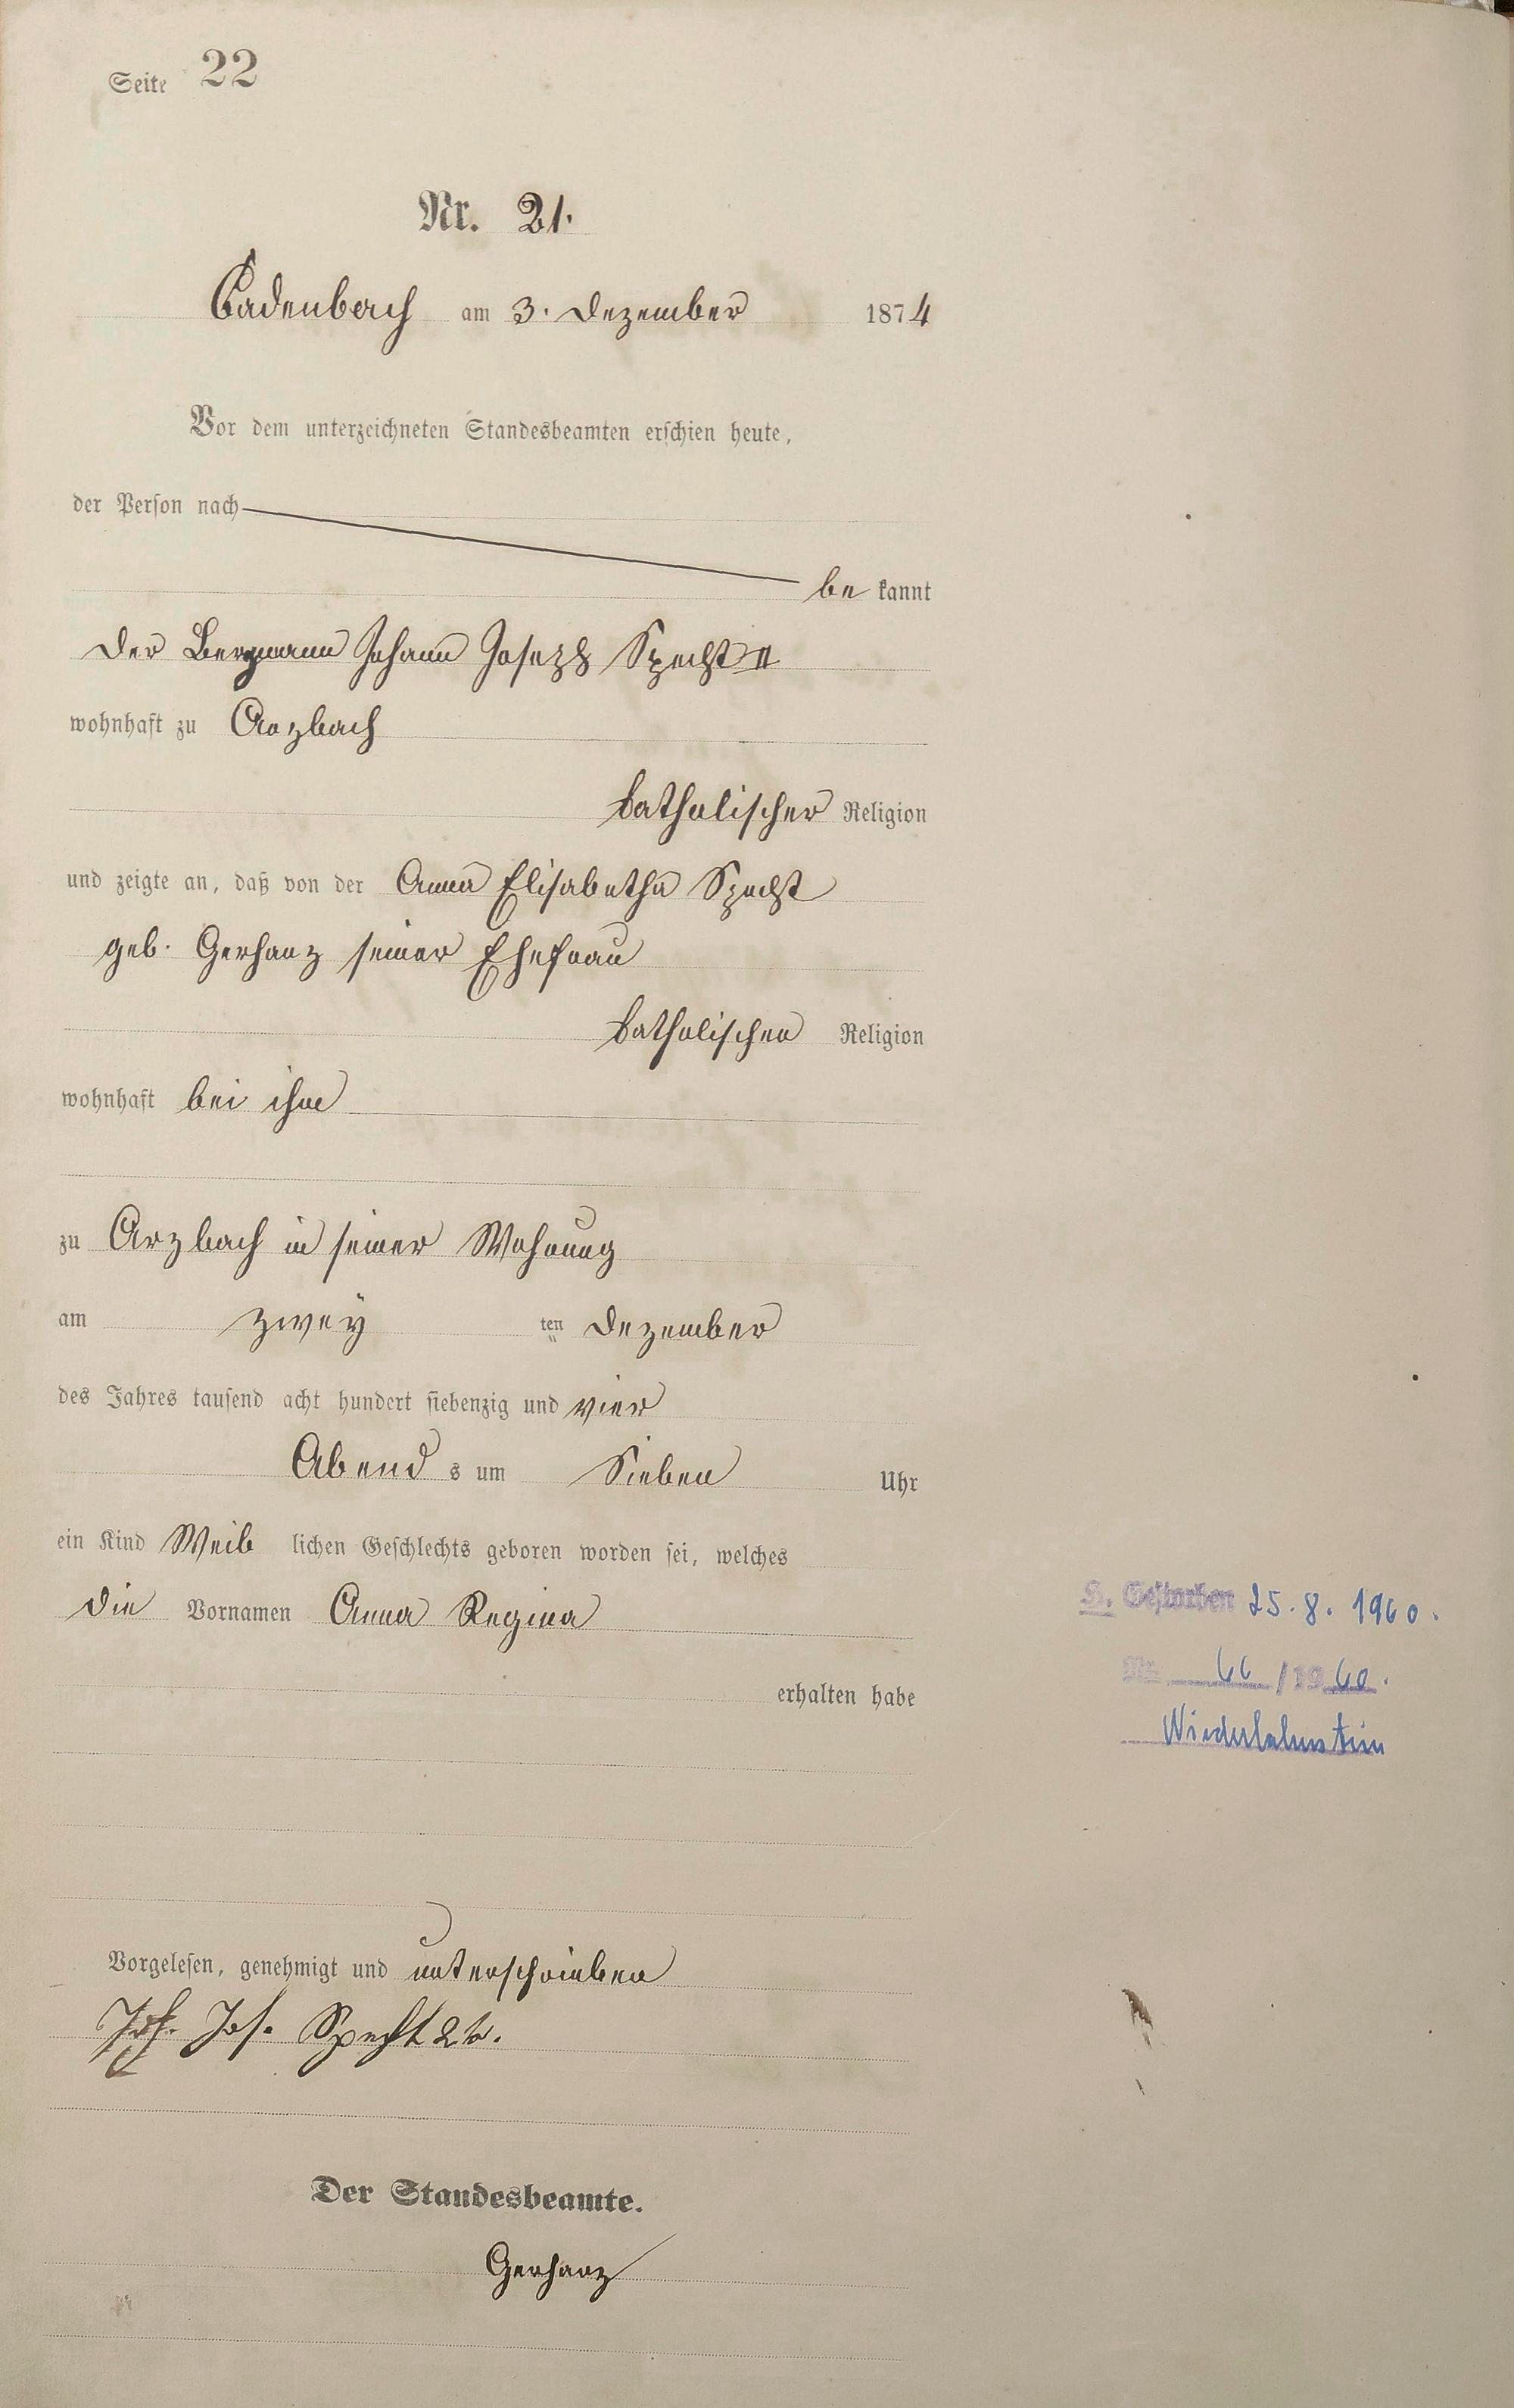 Seite 22
Nr. 21.
Cadenbach am 3. Dezember 1874
Vor dem unterzeichneten Standesbeamten erschien heute,
der Person nach
be kannt
der Bergmann Johann Joseph Specht II
wohnhaft zu Arzbach
katholischer Religion
und zeigte an, daß von der Anna Elisabetha Specht
geb. Gerharz seiner Ehefrau
katholischer Religion
wohnhaft bei ihm
zu Arzbach in seiner Wohnung
am zwey ten Dezember
des Jahres tausend acht hundert siebenzig und vier
Abend s um Sieben Uhr
ein Kind Weib lichen Geschlechts geboren worden sei, welches
die Vornamen Anna Regina
erhalten habe
H. Gestorben 25.8.1960.
Nr. 66/1960.
Niederlahnstein
Vorgelesen, genehmigt und unterschrieben
Joh. Jos. Specht 2t.
Der Standesbeamte.
Gerharz